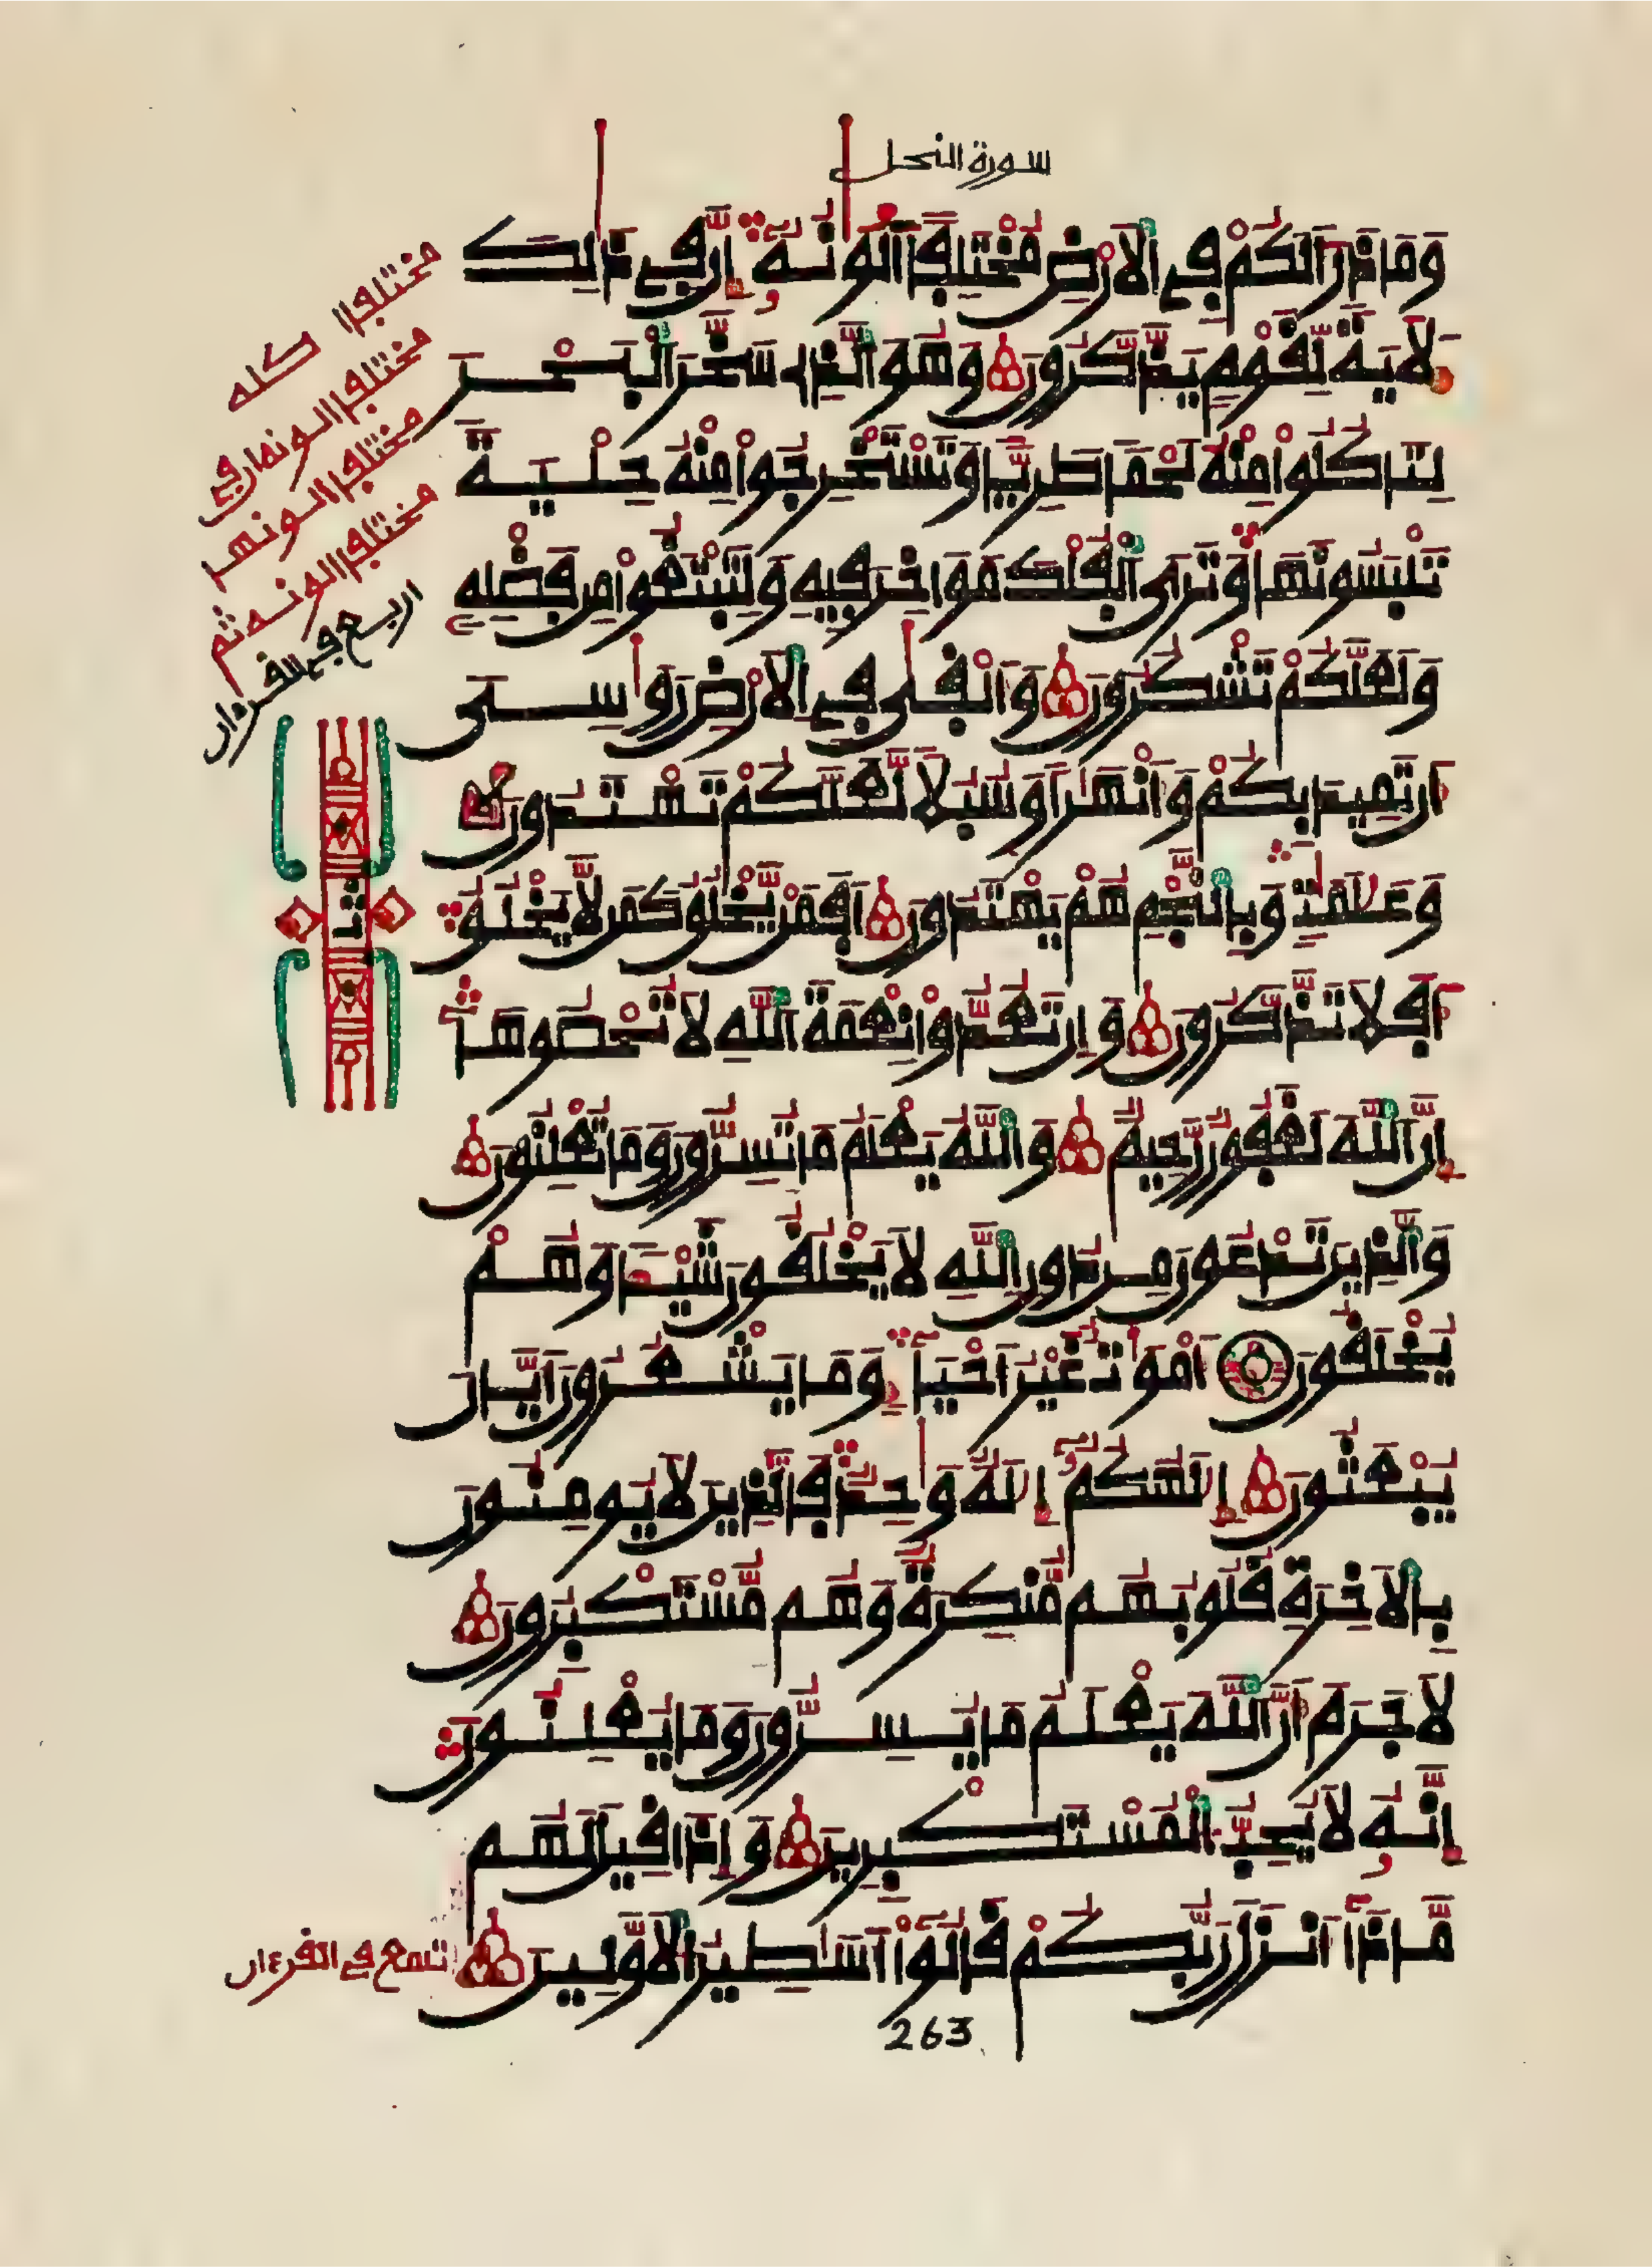 سورة النحل
وَمَا ذَرَأَ لَكُمْ فِي الْأَرْضِ مُخْتَلِفًا أَلْوَانُهُ إِنَّ فِي ذَٰلِكَ
لَآيَةً لِّقَوْمٍ يَذَّكَّرُونَ وَهُوَ الَّذِي سَخَّرَ الْبَحْرَ
لِتَاكُلُوا مِنْهُ لَحْمًا طَرِيًّا وَتَسْتَخْرِجُوا مِنْهُ حِلْيَةً
تَلْبَسُونَهَا وَتَرَى الْفُلْكَ مَوَاخِرَ فِيهِ وَلِتَبْتَغُوا مِن فَضْلِهِ
وَلَعَلَّكُمْ تَشْكُرُونَ وَأَلْقَىٰ فِي الْأَرْضِ رَوَاسِيَ
أَن تَمِيدَ بِكُمْ وَأَنْهَارًا وَسُبُلًا لَّعَلَّكُمْ تَهْتَدُونَ
وَعَلَامَاتٍ وَبِالنَّجْمِ هُمْ يَهْتَدُونَ أَفَمَن يَخْلُقُ كَمَن لَّا يَخْلُقُ
أَفَلَا تَذَّكَّرُونَ وَإِن تَعُدُّوا نِعْمَةَ اللَّهِ لَا تُحْصُوهَا
إِنَّ اللَّهَ لَغَفُورٌ رَّحِيمٌ وَاللَّهُ يَعْلَمُ مَا تُسِرُّونَ وَمَا تُعْلِنُونَ
وَالَّذِينَ تَدْعُونَ مِن دُونِ اللَّهِ لَا يَخْلُقُونَ شَيْئًا وَهُمْ
يُخْلَقُونَ أَمْوَاتٌ غَيْرُ أَحْيَاءٍ وَمَا يَشْعُرُونَ أَيَّانَ
يُبْعَثُونَ إِلَٰهُكُمْ إِلَٰهٌ وَاحِدٌ فَالَّذِينَ لَا يُومِنُونَ
بِالْآخِرَةِ قُلُوبُهُم مُّنكِرَةٌ وَهُم مُّسْتَكْبِرُونَ
لَا جَرَمَ أَنَّ اللَّهَ يَعْلَمُ مَا يُسِرُّونَ وَمَا يُعْلِنُونَ
إِنَّهُ لَا يُحِبُّ الْمُسْتَكْبِرِينَ وَإِذَا قِيلَ لَهُم
مَّاذَا أَنزَلَ رَبُّكُمْ قَالُوا أَسَاطِيرُ الْأَوَّلِينَ
مختلفا كله
مختلفا الونها ان في
مختلفا الونها
مختلفا الونه ثم
اربع في القرءان
ثمن
تسع في القرءان
263